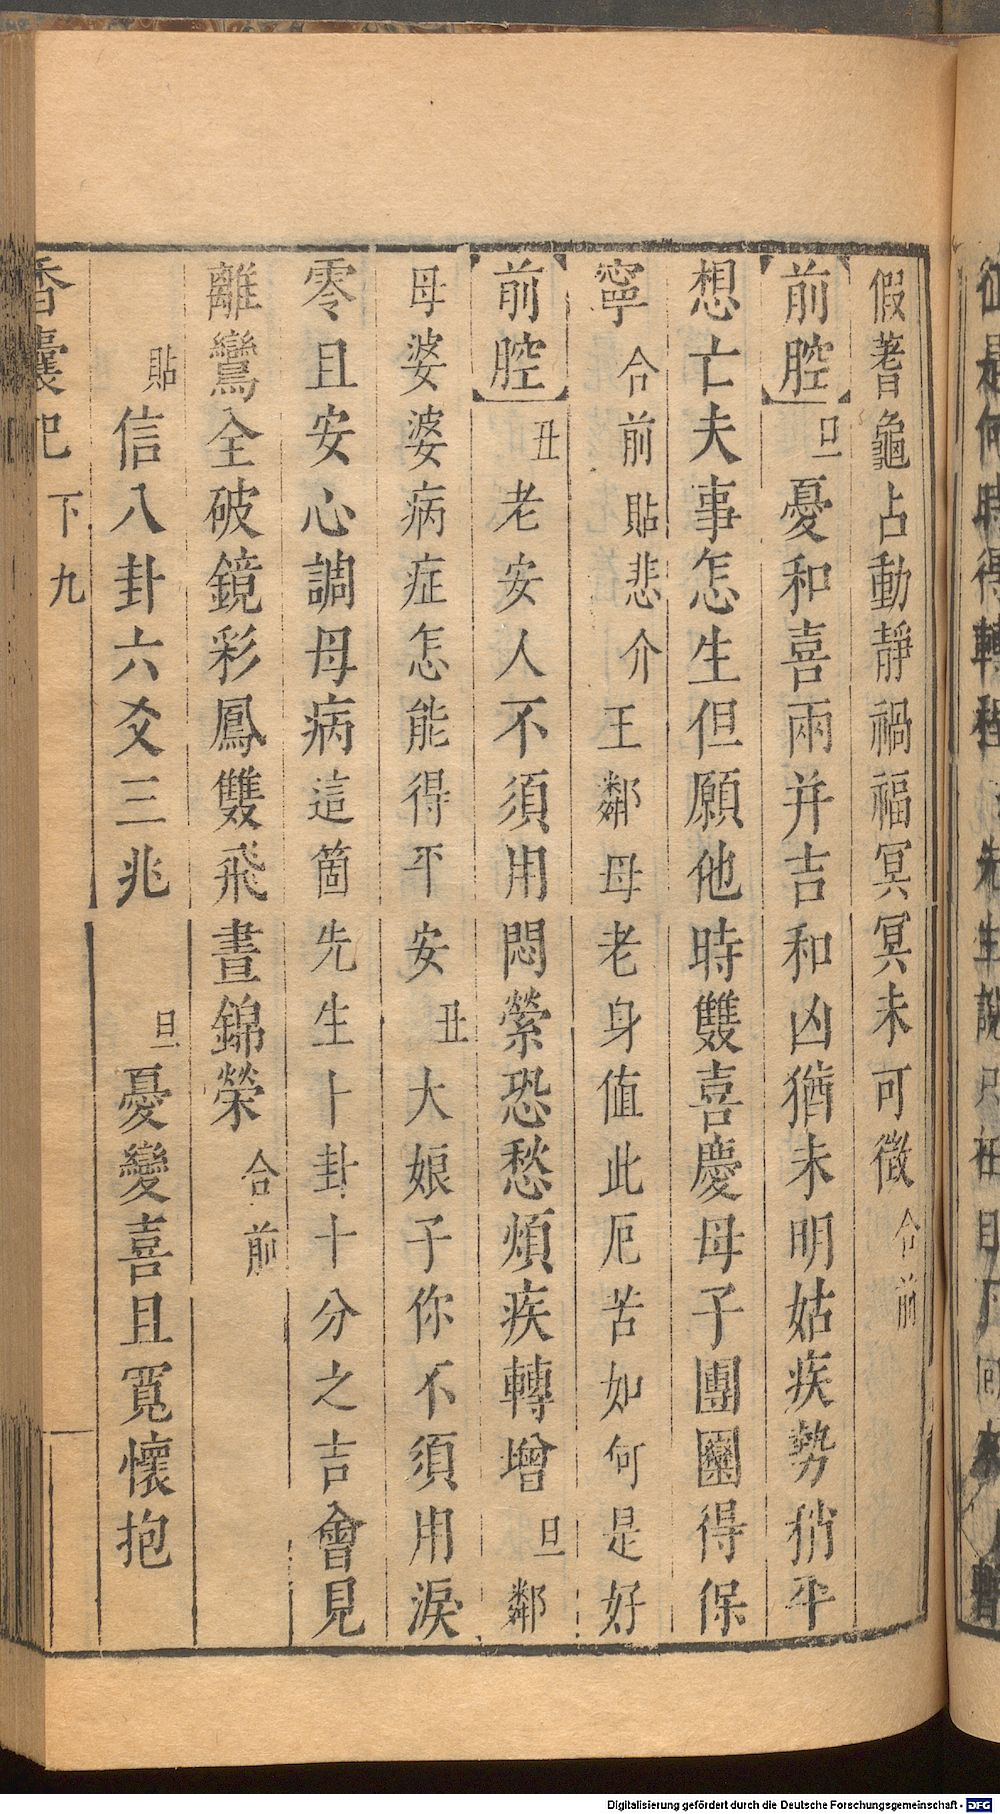 假蓍龜占動靜禍福冥冥未可徵合前
前腔旦憂和喜兩并吉和凶猶未明姑疾勢稍平
想亡夫事怎生但願他時雙喜慶母子團圞得保
寧合前貼悲介王鄰母老身值此厄苦如何是好
前腔丑老安人不須用悶縈恐愁煩疾轉增旦鄰
母婆婆病症怎能得平安丑大娘子你不須用淚
零且安心調母病這箇先生卜卦十分之吉會見
離鸞全破鏡彩鳳雙飛晝錦榮合前
貼信八卦六爻三兆 旦憂變喜且寬懷抱
香囊記 下 九
Digitalisierung gefördert durch die Deutsche Forschungsgemeinschaft - DFG